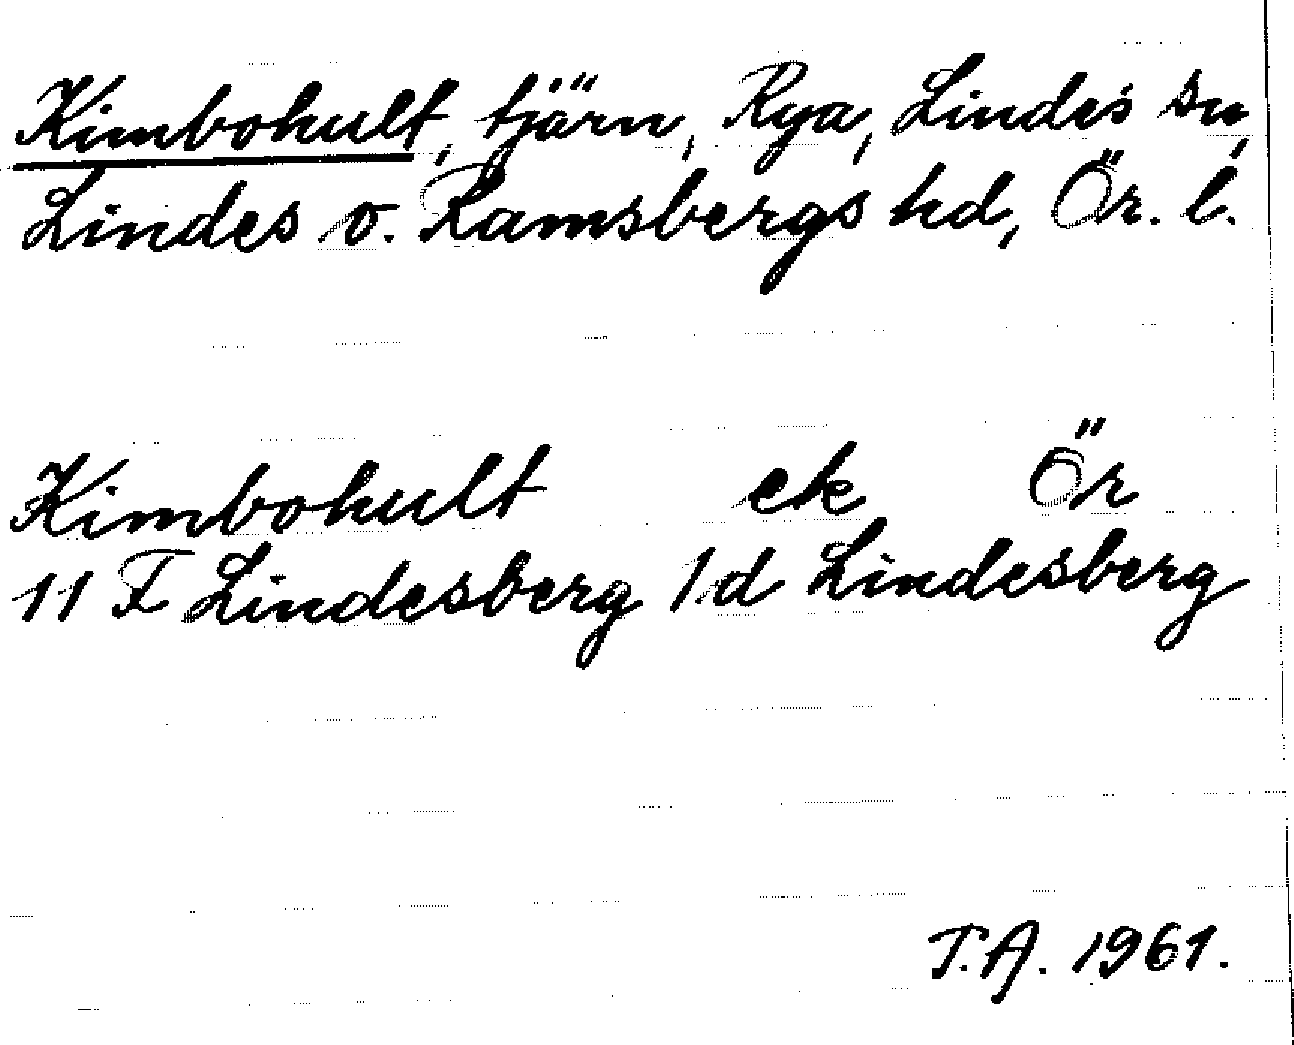 Kimbohult, tjärn, Rya, Lindes sn,
Lindes o. Ramsbergs hd, Ör. l.
Kimbohult ek Ör
11 F Lindesberg 1d Lindesberg
T.A. 1961.